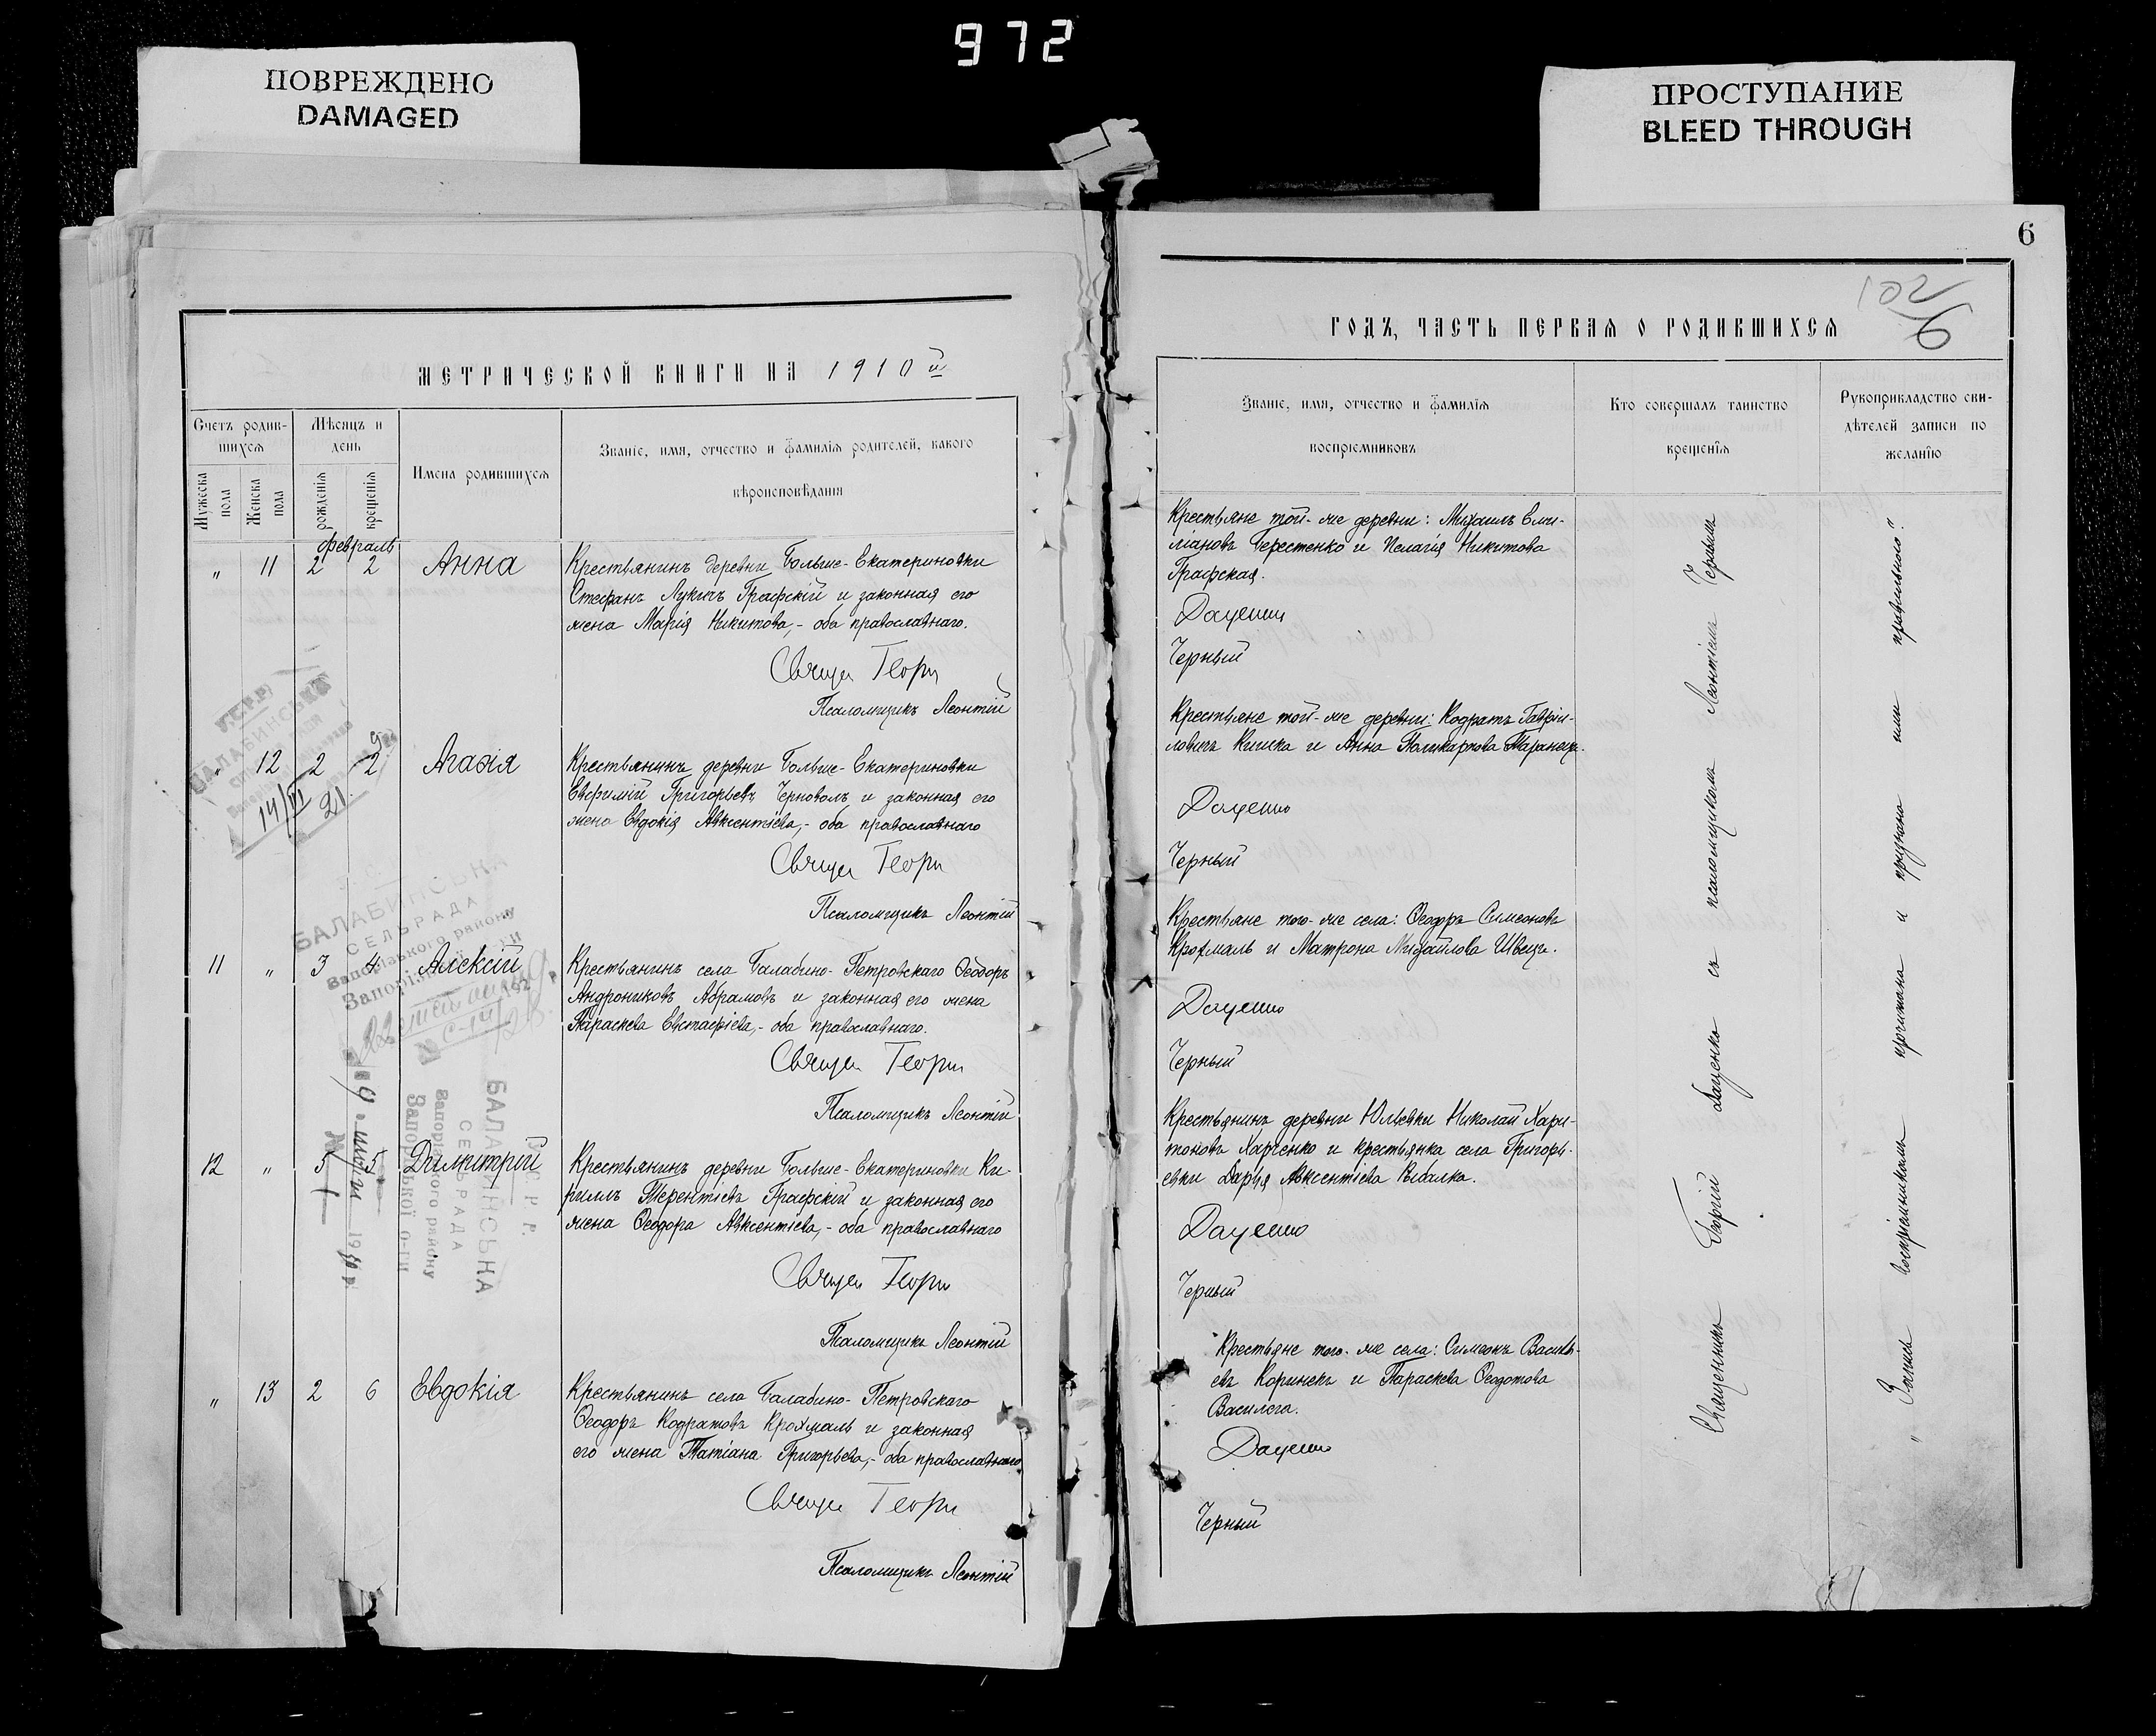 972
ПОВРЕЖДЕНО
DAMAGED
ПРОСТУПАНИЕ
BLEED THROUGH
МЕТРИЧЕСКОЙ КНИГИ НА 1910й
Счетъ родив-
шихся
Мѣсяцъ и
день
Имена родившихся
Званіе, имя, отчество и фамилія родителей, какого
вѣроисповѣданія
Мужеска пола
Женска пола
рожденія
крещенія
февраль
„ 11 2 2 Анна Крестьянинъ деревни Больше-Екатериновки
Стефанъ Лукичъ Графскій и законная его
жена Марія Никитова, - оба православнаго.
Священ Георги
Псаломщикъ Леонтій
„ 12 2 2 Агафія Крестьянинъ деревни Больше-Екатериновки
Евфимій Григорьевъ Черноволъ и законная его
жена Евдокія Авксентіева, - оба православнаго
Священ Георги
Псаломщикъ Леонтій
14/III 21.
БАЛАБИНСЬКА
СЕЛЬРАДА
Запорізького району
11 „ 3 4 Алексій Крестьянинъ села Балабино-Петровскаго Ѳеодоръ
Андрониковъ Абрамовъ и законная его жена
Параскева Евстафіева, - оба православнаго.
Священ Георги
Псаломщикъ Леонтій
12 „ 5 5 Димитрій Крестьянинъ деревни Больше-Екатериновки Ки-
риллъ Терентіевъ Графскій и законная его
жена Ѳеодора Авксентіева, - оба православнаго
Священ Георги
Псаломщикъ Леонтій
БАЛАБИНСЬКА
СЕЛЬРАДА
Запорізького району
Запорізької о-ги
„ 13 2 6 Евдокія Крестьянинъ села Балабино-Петровскаго
Ѳеодоръ Кодратовъ Крохмаль и законная
его жена Татіана Григорьева, - оба православнаго
Священ Георги
Псаломщикъ Леонтій
6
102
6
ГОДЪ, ЧАСТЬ ПЕРВАЯ О РОДИВШИХСЯ
Званіе, имя, отчество и фамилія
воспріемниковъ
Кто совершалъ таинство
крещенія
Рукоприкладство сви-
дѣтелей записи по
желанію
Крестьяне той-же деревни: Михаилъ Еми-
ліановъ Берестенко и Пелагія Никитова
Графская.
Даценко
Черный
Крестьяне той-же деревни: Кодратъ Гаврі-
ловичъ Кишка и Анна Поликарпова Таранецъ.
Даценко
Черный
Крестьяне того-же села: Ѳеодоръ Симеоновъ
Крохмаль и Матрона Михайлова Швецъ.
Даценко
Черный
Крестьянинъ деревни Юльевки Николай Хари-
тоновъ Харченко и крестьянка села Григорь-
евки Дарья Авксентіева Рыбалка.
Даценко
Черный
Крестьяне того-же села: Симеонъ Василь-
евъ Коринекъ и Параскева Ѳеодотова
Василега.
Даценко
Черный
Священникъ Георгій Даценко съ псаломщикомъ Леонтіемъ Чернымъ
„Запись воспріемниками прочитана и признана ими правильною“.